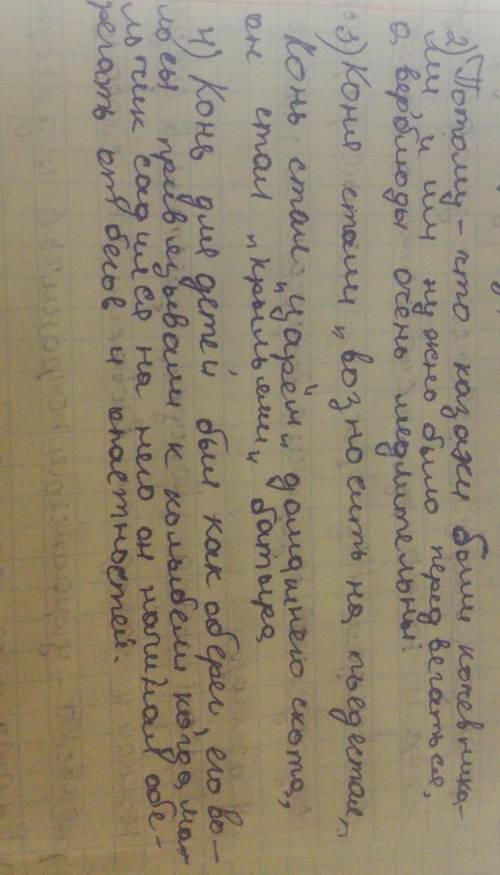 2) Потому-что казахи были кочевника-
ми и им нужно было перед вегаться,
а верблюды очень медлительны.
3) Коня стали „возносить на пьедестал„
Конь стал „царём„ домашнего скота,
он стал „крыльями„ батыра
4) Конь для детей был как оберег, его во-
лосы привязывали к колыбели когда маль
льчик садился на него он начинал обе-
регать от бегов и опастностей.